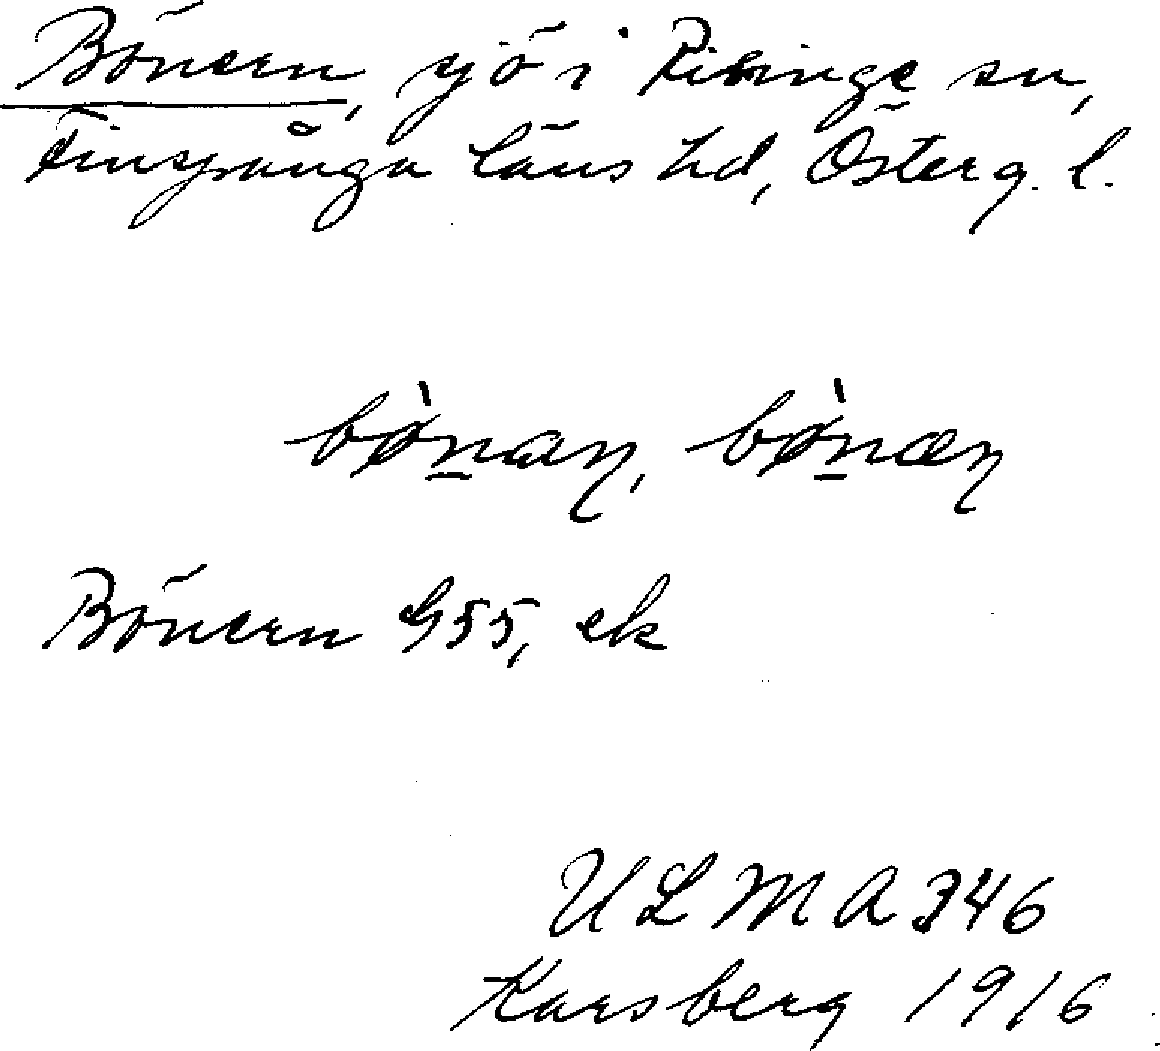 Bönern, sjö i Risinge sn,
Finspånga läns hd, Österg. l.
bø̀naɳ, bø̀næɳ
Bönern G55, ek
ULMA 346
Karsberg 1916